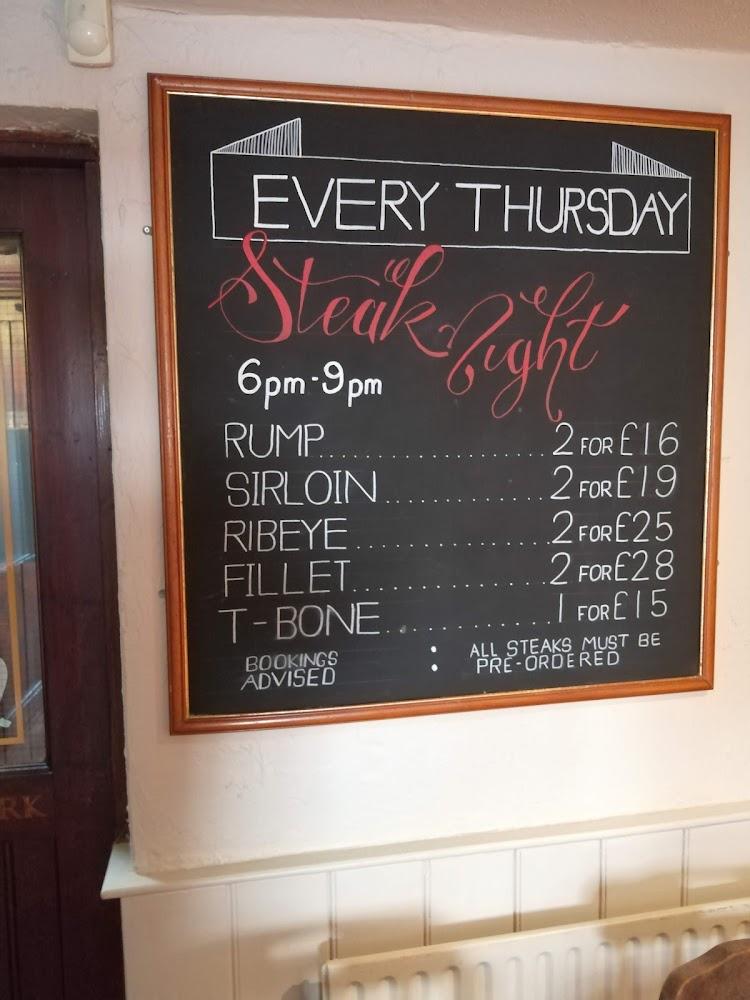 EVERY THURSDAY
Steak Night
6pm-9pm
RUMP.....................2 FOR £16
SIRLOIN..................2 FOR £19
RIBEYE...................2 FOR £25
FILLET...................2 FOR £28
T-BONE...................1 FOR £15
BOOKINGS ADVISED : ALL STEAKS MUST BE PRE-ORDERED
RK